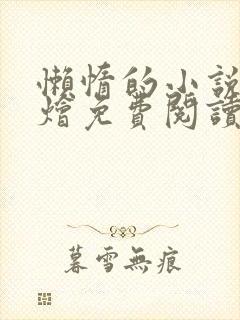 懶惰的小說
燴免費閱讀
暮雪無痕